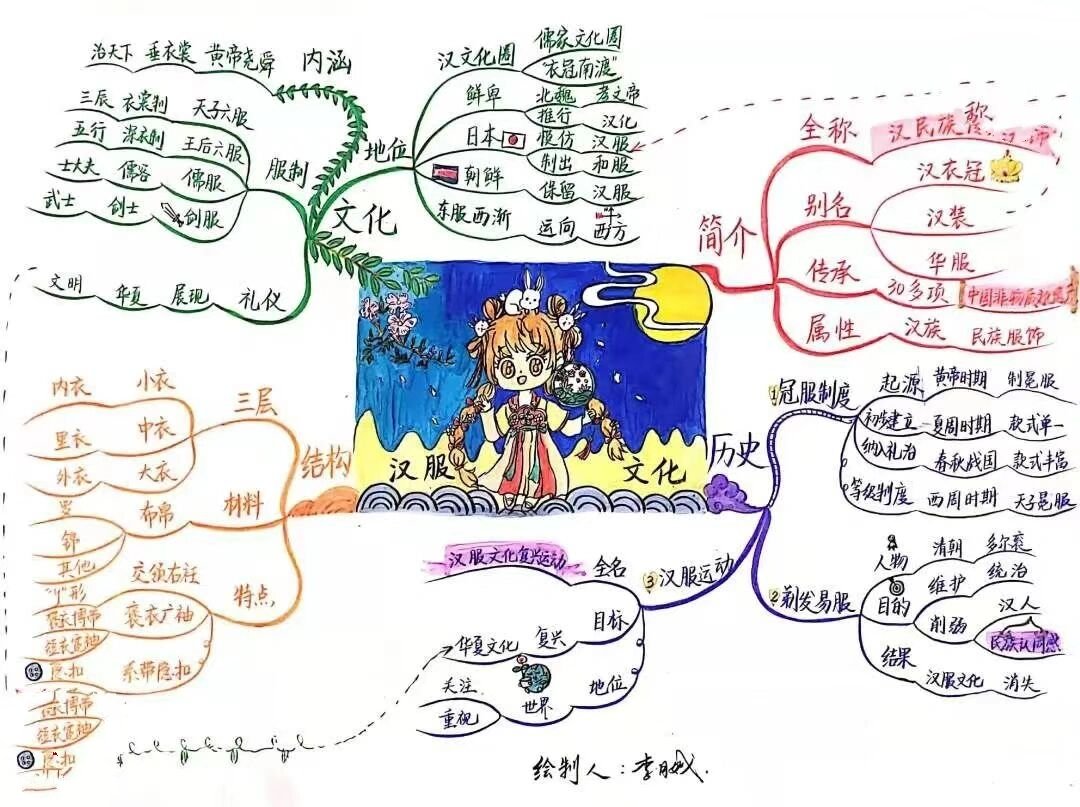 汉服
文化
简介
全称
汉民族
别名
汉衣冠
汉装
华服
传承
30多项
属性
汉族 民族服饰
历史
①冠服制度
起源 黄帝时期 制冕服
初步建立 夏周时期 款式单一
纳入礼治 春秋战国 款式丰富
等级制度 西周时期 天子冕服
②剃发易服
人物 清朝 多尔衮
目的 维护 统治
削弱 汉人
民族认同感
结果 汉服文化 消失
③汉服运动
全名
汉服文化复兴运动
目标
复兴 华夏文化
地位
世界
关注
重视
结构
三层
小衣 内衣
中衣 里衣
大衣 外衣
材料
布帛
锦
其他
特点
交领右衽
"y"形
褒衣广袖
系带隐扣
隐扣
隐扣
文化
内涵
黄帝尧舜 垂衣裳 治天下
服制
天子六服 衣裳制 三辰
王后六服 深衣制 五行
儒服 儒客 士大夫
剑服 剑士 武士
礼仪 展现 华夏 文明
地位
汉文化圈 儒家文化圈
"衣冠南渡"
鲜卑 北魏 孝文帝
推行 汉化
日本 模仿 汉服
制出 和服
朝鲜 保留 汉服
东服西渐 运向 西方
绘制人:李